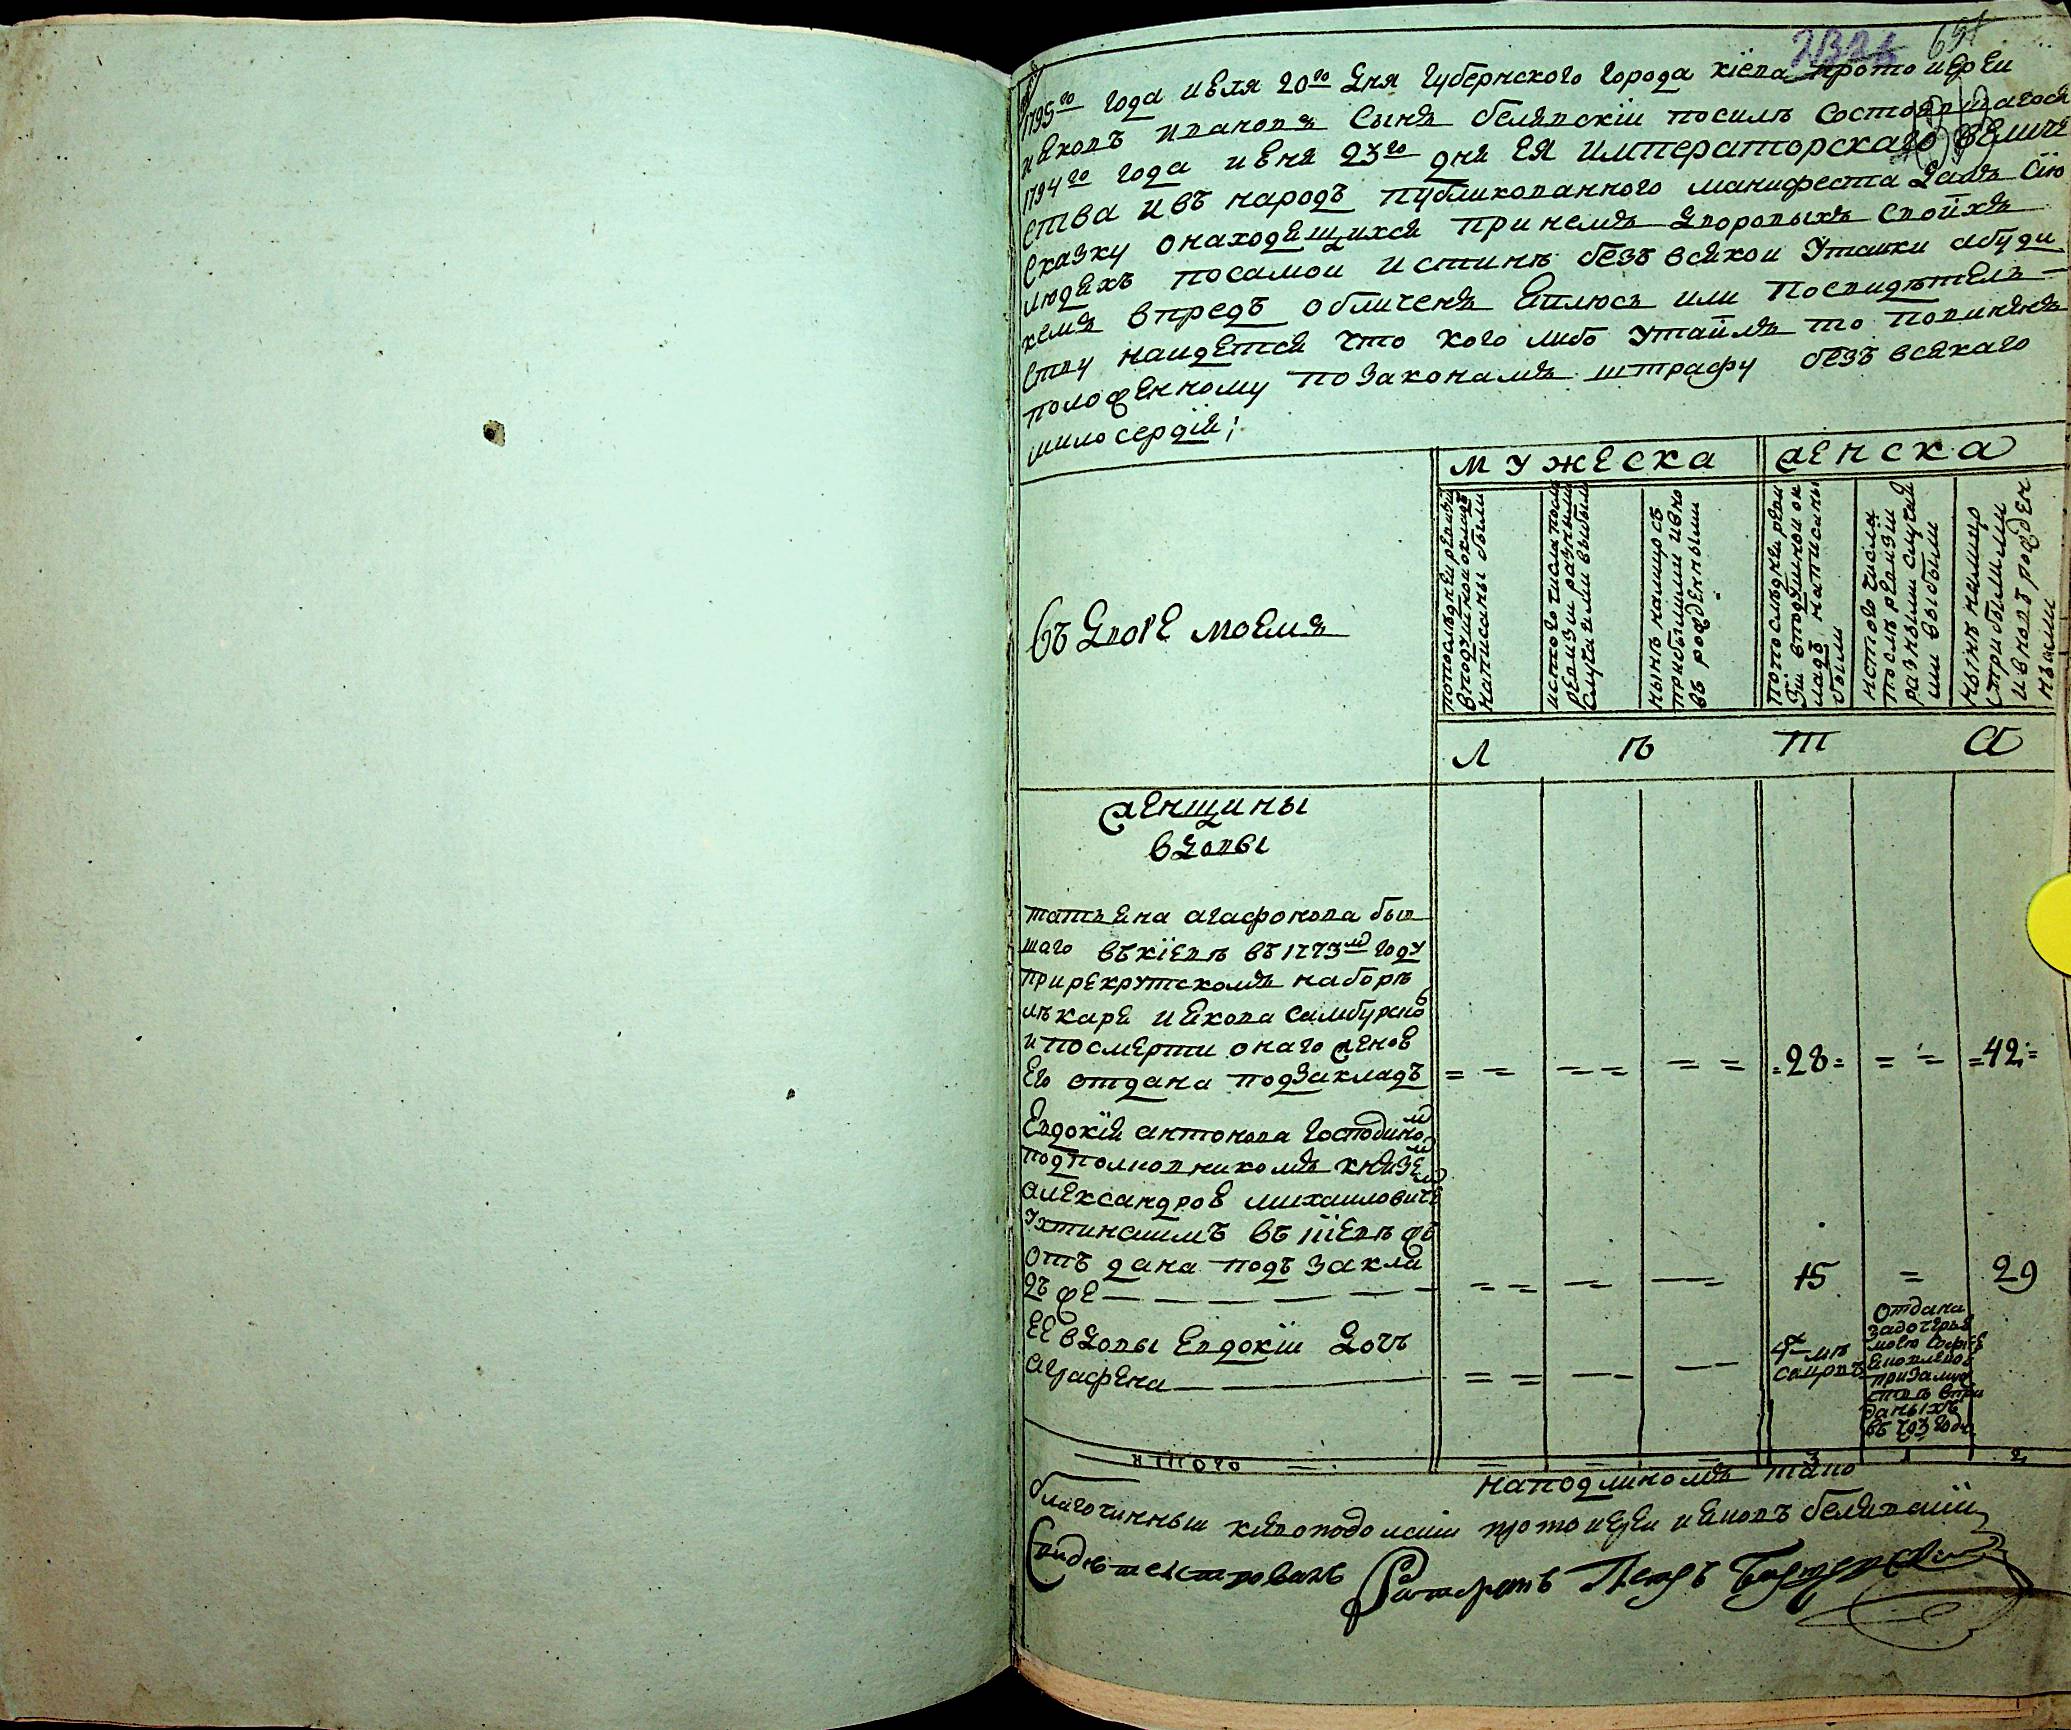 691
1795го года июля 20го дня губернского города кіева протоиерей
ияковъ ивановъ сынъ белявскій по силѣ состоявшагося
1794го года июня 23го дня ея императорскаго величе
ства и въ народъ публикованного манифеста далъ сію
сказку о находящихся при немъ дворовыхъ своихъ
людяхъ по самой истинѣ безъ всякой утайки а буди
кемъ впредь обличенъ явлюсь или по свидѣтель-
ству найдется что кого либо утаилъ то повиненъ
положенному по законамъ штрафу безъ всякаго
милосердія;
мужеска женска
въ дворе моемъ
по последней ревизіи
в подушной окладъ
написаны были
ис того числа после
ревизіи разными
случаями выбыли
нынѣ налицо съ
прибылыми и вно
въ рожденными
по последней реви
зіи в подушной ок
ладъ написаны
были
ис того числа
после ревизіи
разными случая
ми выбыли
нынѣ налицо
с прибылыми
и вновь рожден
ными
л ѣ т а
женщины
вдовы
татьяна агафонова быв
шаго въ кіевѣ въ 1773мъ году
при рекрутскомъ наборѣ
лѣкаря иякова самбурско
и по смерти онаго женою
его отдана под закладъ = = = = = = =28= = = =42=
Евдокія антонова господином
подполковникомъ князем
александром михаиловиче
ухтинскимъ въ кіевѣ жъ
отъ дана подъ закла
дъ же — — — — — — = = — — — — 15 = 29
ее вдовы евдокіи дочь
аграфена — = = — — — — 4х лѣ
отдана
за дочерью
моею
при замуж
ствѣ в при
даныхъ
въ 793 году
итого = = = = 3 1 2
на подлиномъ тако
благочинный кіевоподолскій протоиерей ияковъ белявскій
Свидѣтелствовалъ Ратсгеръ Петръ